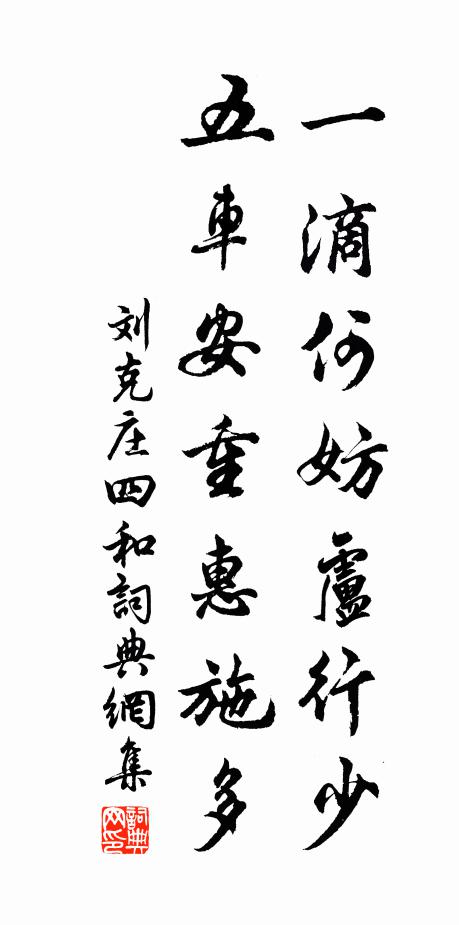 一滴何妨盧行少
五車安重惠施多
刘克庄四和詞典網集
詞典网印